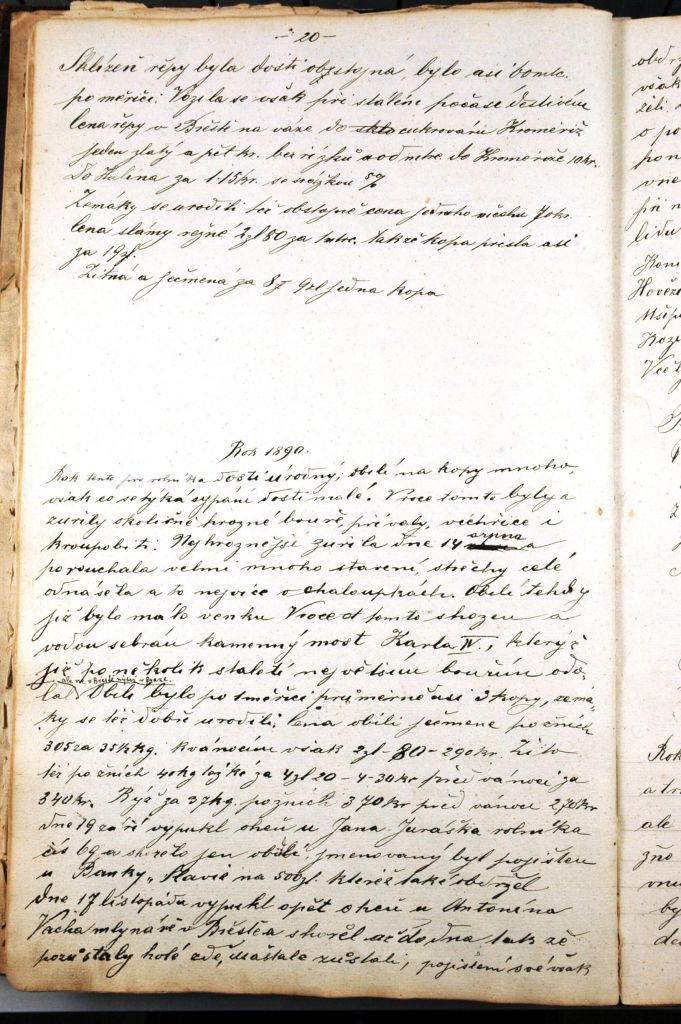 - 20 -
Sklizeň řepy byla dosti obstojná, bylo asi 60 mtc.
po měřici. Vozila se však při stálém počasé deštivém
cena řepy v Břestě na váze do cukrovaru Kroměříž
jeden zlatý a pět kr. bez řízků a od mtc. do Kroměříže 10 kr.
Do Hulína za 1·15 kr. se srážkou 5%
Zemáky se urodili též obstojně cena jednoho měchu 70 kr.
cena slamy režné 2 zl 80 za 1 mtc. takže kopa přišla asi
za 19 zl.
Žitná a ječmena za 8 9 zl jedna kopa
Rok 1890.
Rok tento pro rolníka dosti úrodný, obilí na kopy mnoho,
však co se týká sypání dosti malé. V roce tomto byly a
zuřily okoličné hrozné bouře, přívaly, vichřice i
kroupobití. Nejhroznější zuřila dne 14 srpna a
porouchala velmi mnoho stavení, střechy celé
odnášela a to nejvíce o chaloupkách. Obilí tehdy
již bylo málo venku V roce tomto shozen a
vodou sebrán kamenný most Karla IV., kterýž
již po několik staletí největším bouřím odo-
ale ne v Břestě nýbrž v Praze.
lal Obilí bylo po 1 měřici průměrně asi 3 kopy, zemá-
ky se též dobře urodili. Cena obilí ječmene po žních
305 za 35½ kg. k vánocům však 2 zl - 80 - 290 kr. Žito
též po žních 40 kg za 4 zl 20 - 4 - 30 kr před vánoci za
340 kr. Rýž za 37 kg. po žních 370 kr před vánoci 270 kr
dne 19 září vypukl oheň u Jana Juráška rolníka
čís 69 a shořelo jen obilí, jmenovaný byl pojištěn
u Banky „Slavie na 500 zl. kteréž také obdržel
dne 17 listopadu vypukl opět oheň u Antonína
Vácha mlynáře v Břestě a shořel až do dna tak že
pozůstaly holé zdě, maštale zůstali, pojištění své však